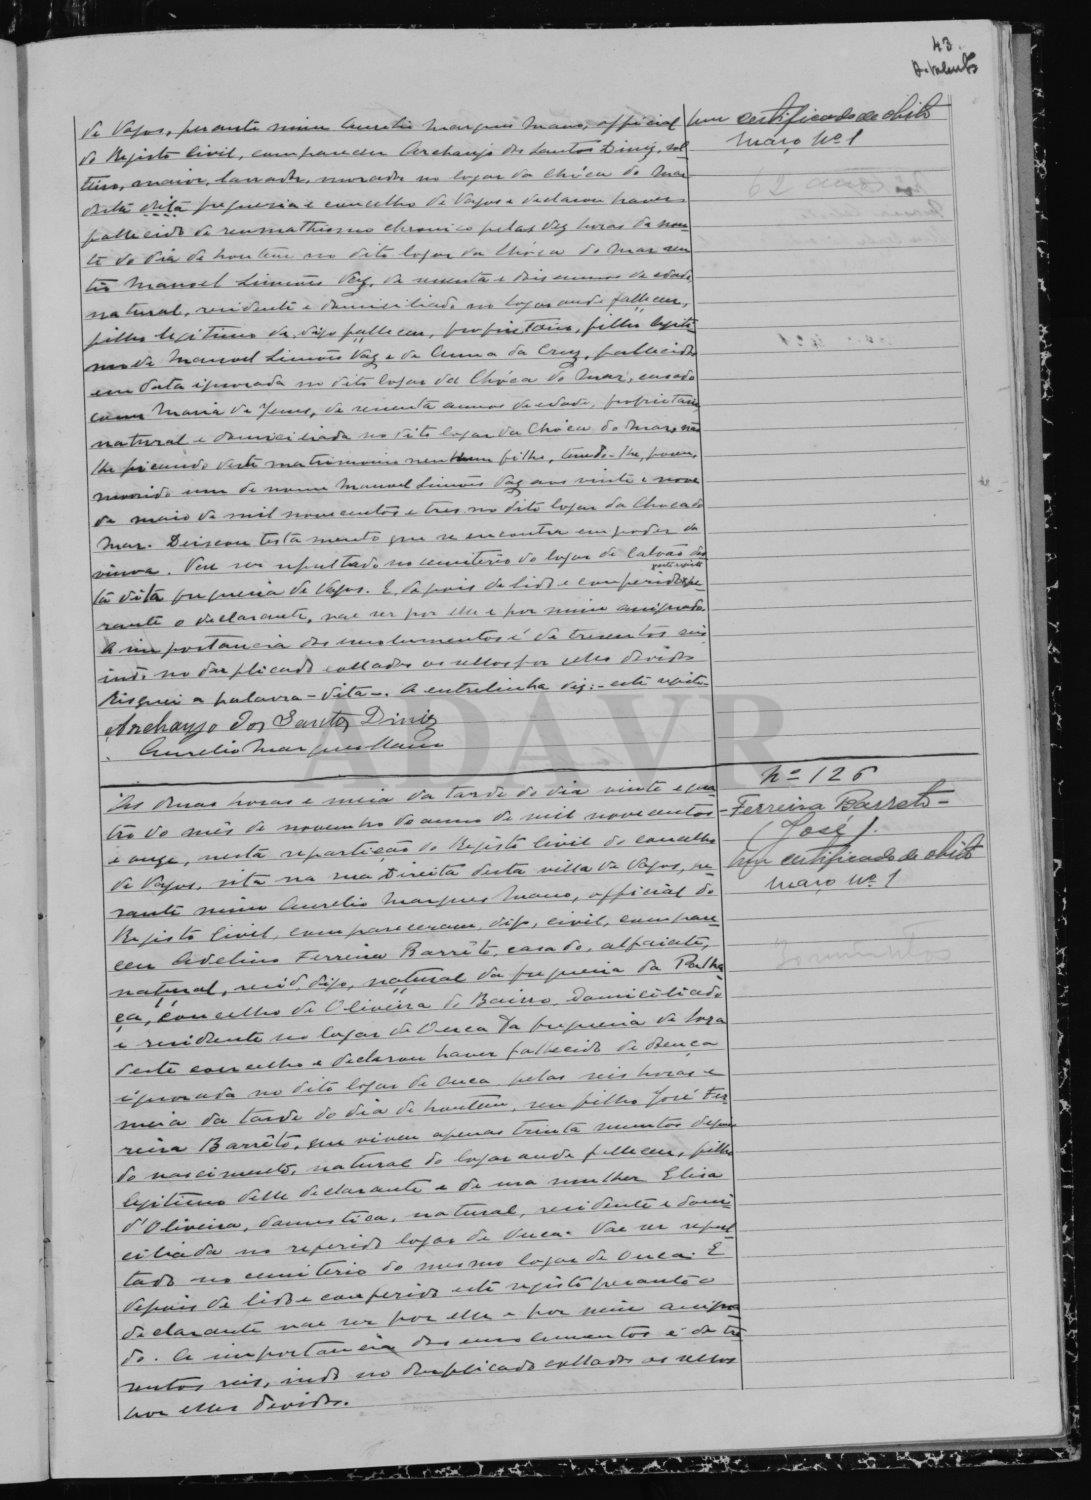 43.
de Vagos, perante mim Aurelio Marques Mano, official
do Registo Civil, compareceu Archanjo dos Santos Diniz, sol-
teiro, maior, lavrador, morador no logar da Chóca do Mar
desta dita freguesia e concelho de Vagos e declarou haver
fallecido de reumathismo chronico pelas dez horas da noi-
te do dia de hontem no dito logar da Chóca do Mar seu
tio Manoel Simões Vaz, de sessenta e dois annos de edade,
natural, residente e domiciliado no logar onde falleceu,
filho legitimo de, digo falleceu, proprietario, filho legiti-
mo de Manoel Simões Vaz e de Anna da Cruz, fallecidos
em data ignorada no dito logar da Chóca do Mar, casado
com Maria de Jesus, de sessenta annos de edade, proprietaria
natural e domiciliada no dito logar da Chóca do Mar, não
lhe ficando deste matrimonio nenhum filho, tendo-lhe, porem,
morrido um de nome Manoel Simões Vaz aos vinte e nove
de maio de mil novecentos e tres no dito logar da Choca do
Mar. Deixou testamento que se encontra em poder da
viuva. Vae ser sepultado no cemiterio do logar de Calvão des-
este registo
ta dita freguesia de Vagos. E, depois de lido e conferido pe-
rante o declarante, vae ser por elle e por mim assignado.
A importancia dos emolumentos é de tresentos reis,
indo no duplicado collados os sellos por elles devidos
Risquei a palavra - dita -. A entrelinha diz: - este registo -
Archanjo dos Santos Diniz
Aurelio Marques Mano
Um certificado de obito
Março Nº 1
Nº 126
- Ferreira Barreto -
(José).
Um certificado de obito
Março Nº 1
Ás duas horas e meia da tarde do dia vinte e qua-
tro do mês de novembro do anno de mil novecentos
e onze, nesta repartição do Registo Civil do concelho
de Vagos, sita na rua Direita desta villa de Vagos, pe-
rante mim Aurelio Marques Mano, official do
Registo Civil, compareceram, digo, civil, compare-
ceu Avelino Ferreira Barrêto, casado, alfaiate,
natural, resid, digo, natural da freguesia da Palha-
ça, concelho de Oliveira do Bairro, domiciliado
e residente no logar de Ouca da freguesia de Soza
deste concelho e declarou haver fallecido de doença
ignorada no dito logar de Ouca, pelas seis horas e
meia da tarde do dia de hontem, seu filho José Fer-
reira Barrêto, que viveu apenas trinta minutos depois
do nascimento, natural do logar onde falleceu, filho
legitimo delle declarante e de sua mulher Elisa
d'Oliveira, domestica, natural, residente e domi-
ciliada no referido logar de Ouca. Vae ser sepul-
tado no cemiterio do mesmo logar de Ouca. E
depois de lido e conferido este registo perante o
declarante vae ser por elle e por mim assigna-
do. A importancia dos emolumentos é de tre-
sentos reis, indo no duplicado collados os sellos
por elles devidos.
ADAVR